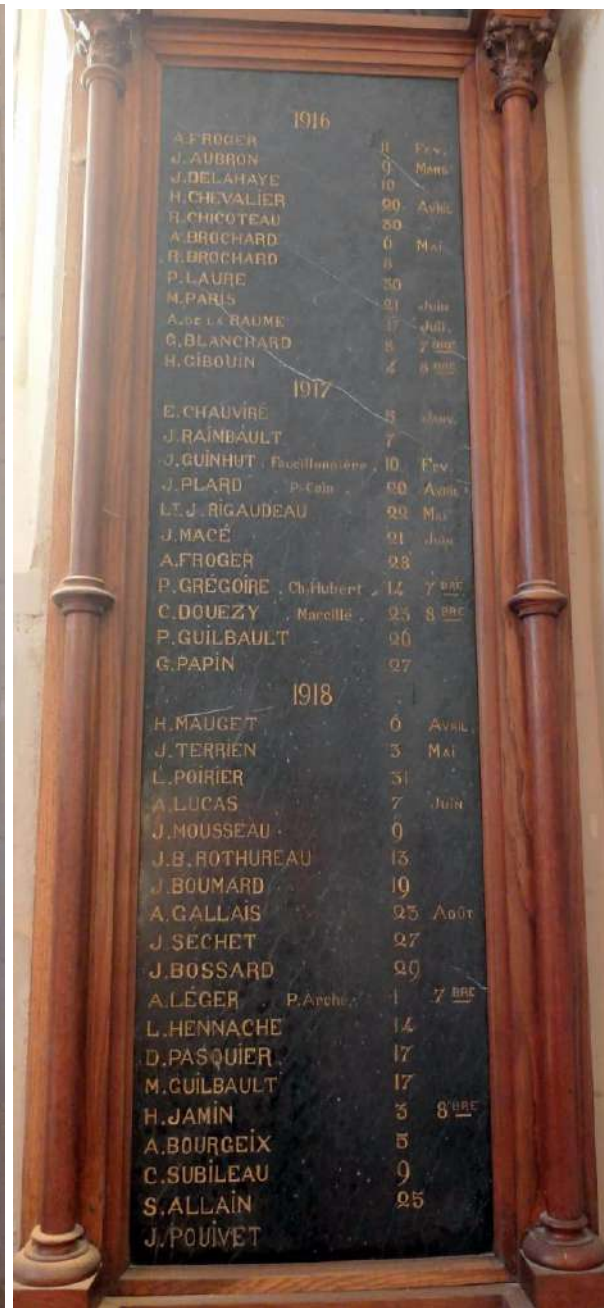 1916
A.FROGER 11 Fév.
J.AUBRON 9 Mars
J.DELAHAYE 10
H.CHEVALIER 20 Avril
R.CHICOTEAU 30
A.BROCHARD 6 Mai
R.BROCHARD 8
P.LAURE 30
M.PARIS 21 Juin
A.DE LA BAUME 17 Juil.
G.BLANCHARD 8 7BRE
H.GIBOUIN 4 8BRE
1917
E.CHAUVIRÉ 5 Janv.
J.RAIMBAULT 7
J.GUINHUT . Faucillonnière . 10 Fev.
J.PLARD P.Coin . 20 Avril
LT.J.RIGAUDEAU 22 Mai
J.MACÉ 21 Juin
A.FROGER 23
P.GRÉGOIRE . Ch.Hubert . 14 7BRE
C.DOUEZY . Marcillé . 25 8BRE
P.GUILBAULT 26
G.PAPIN 27
1918
H.MAUGET 6 AVRIL
J.TERRIEN 3 MAI
L.POIRIER 31
A.LUCAS 7 JUIN
J.MOUSSEAU 9
J.B.ROTHUREAU 13
J.BOUMARD 19
A.GALLAIS 23 AOÛT
J.SÉCHET 27
J.BOSSARD 29
A.LÉGER . P.Arche. 1 7BRE
L.HENNACHE 14
D.PASQUIER 17
M.GUILBAULT 17
H.JAMIN 3 8BRE
A.BOURGEIX 5
C.SUBILEAU 9
S.ALLAIN 25
J.POUIVET